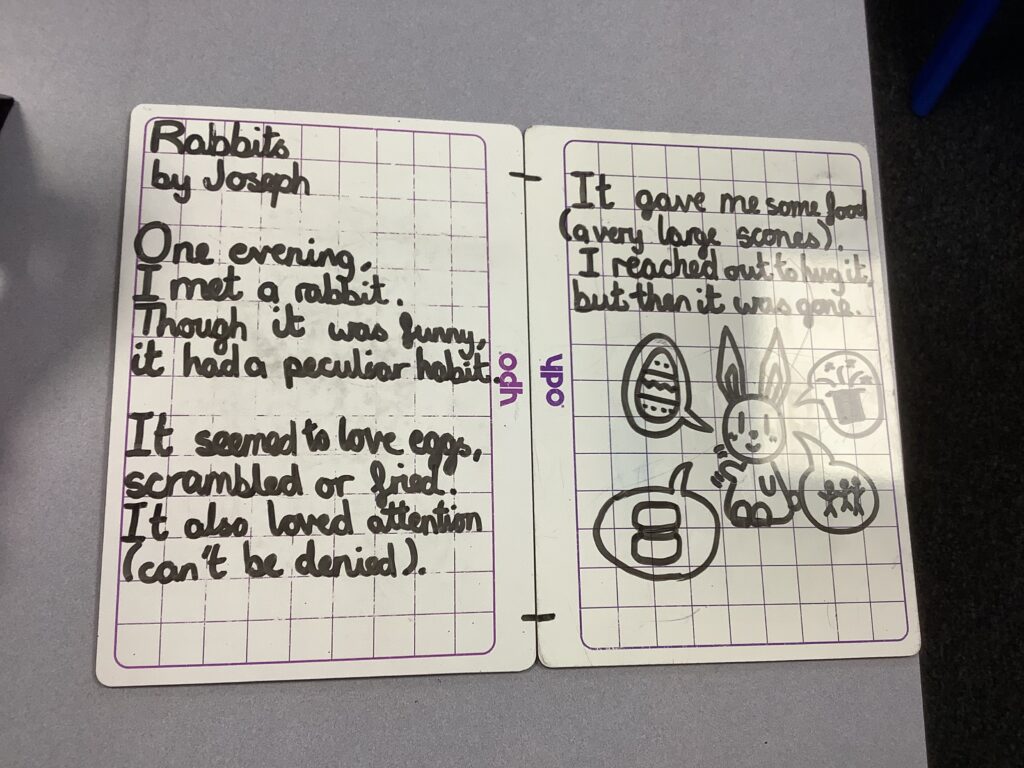 Rabbits
by Joseph
One evening,
I met a rabbit.
Though it was funny,
it had a peculiar habit.
It seemed to love eggs,
scrambled or fried.
It also loved attention
(can't be denied).
ypo
ypo
It gave me some food
(a very large scones).
I reached out to hug it,
but then it was gone.